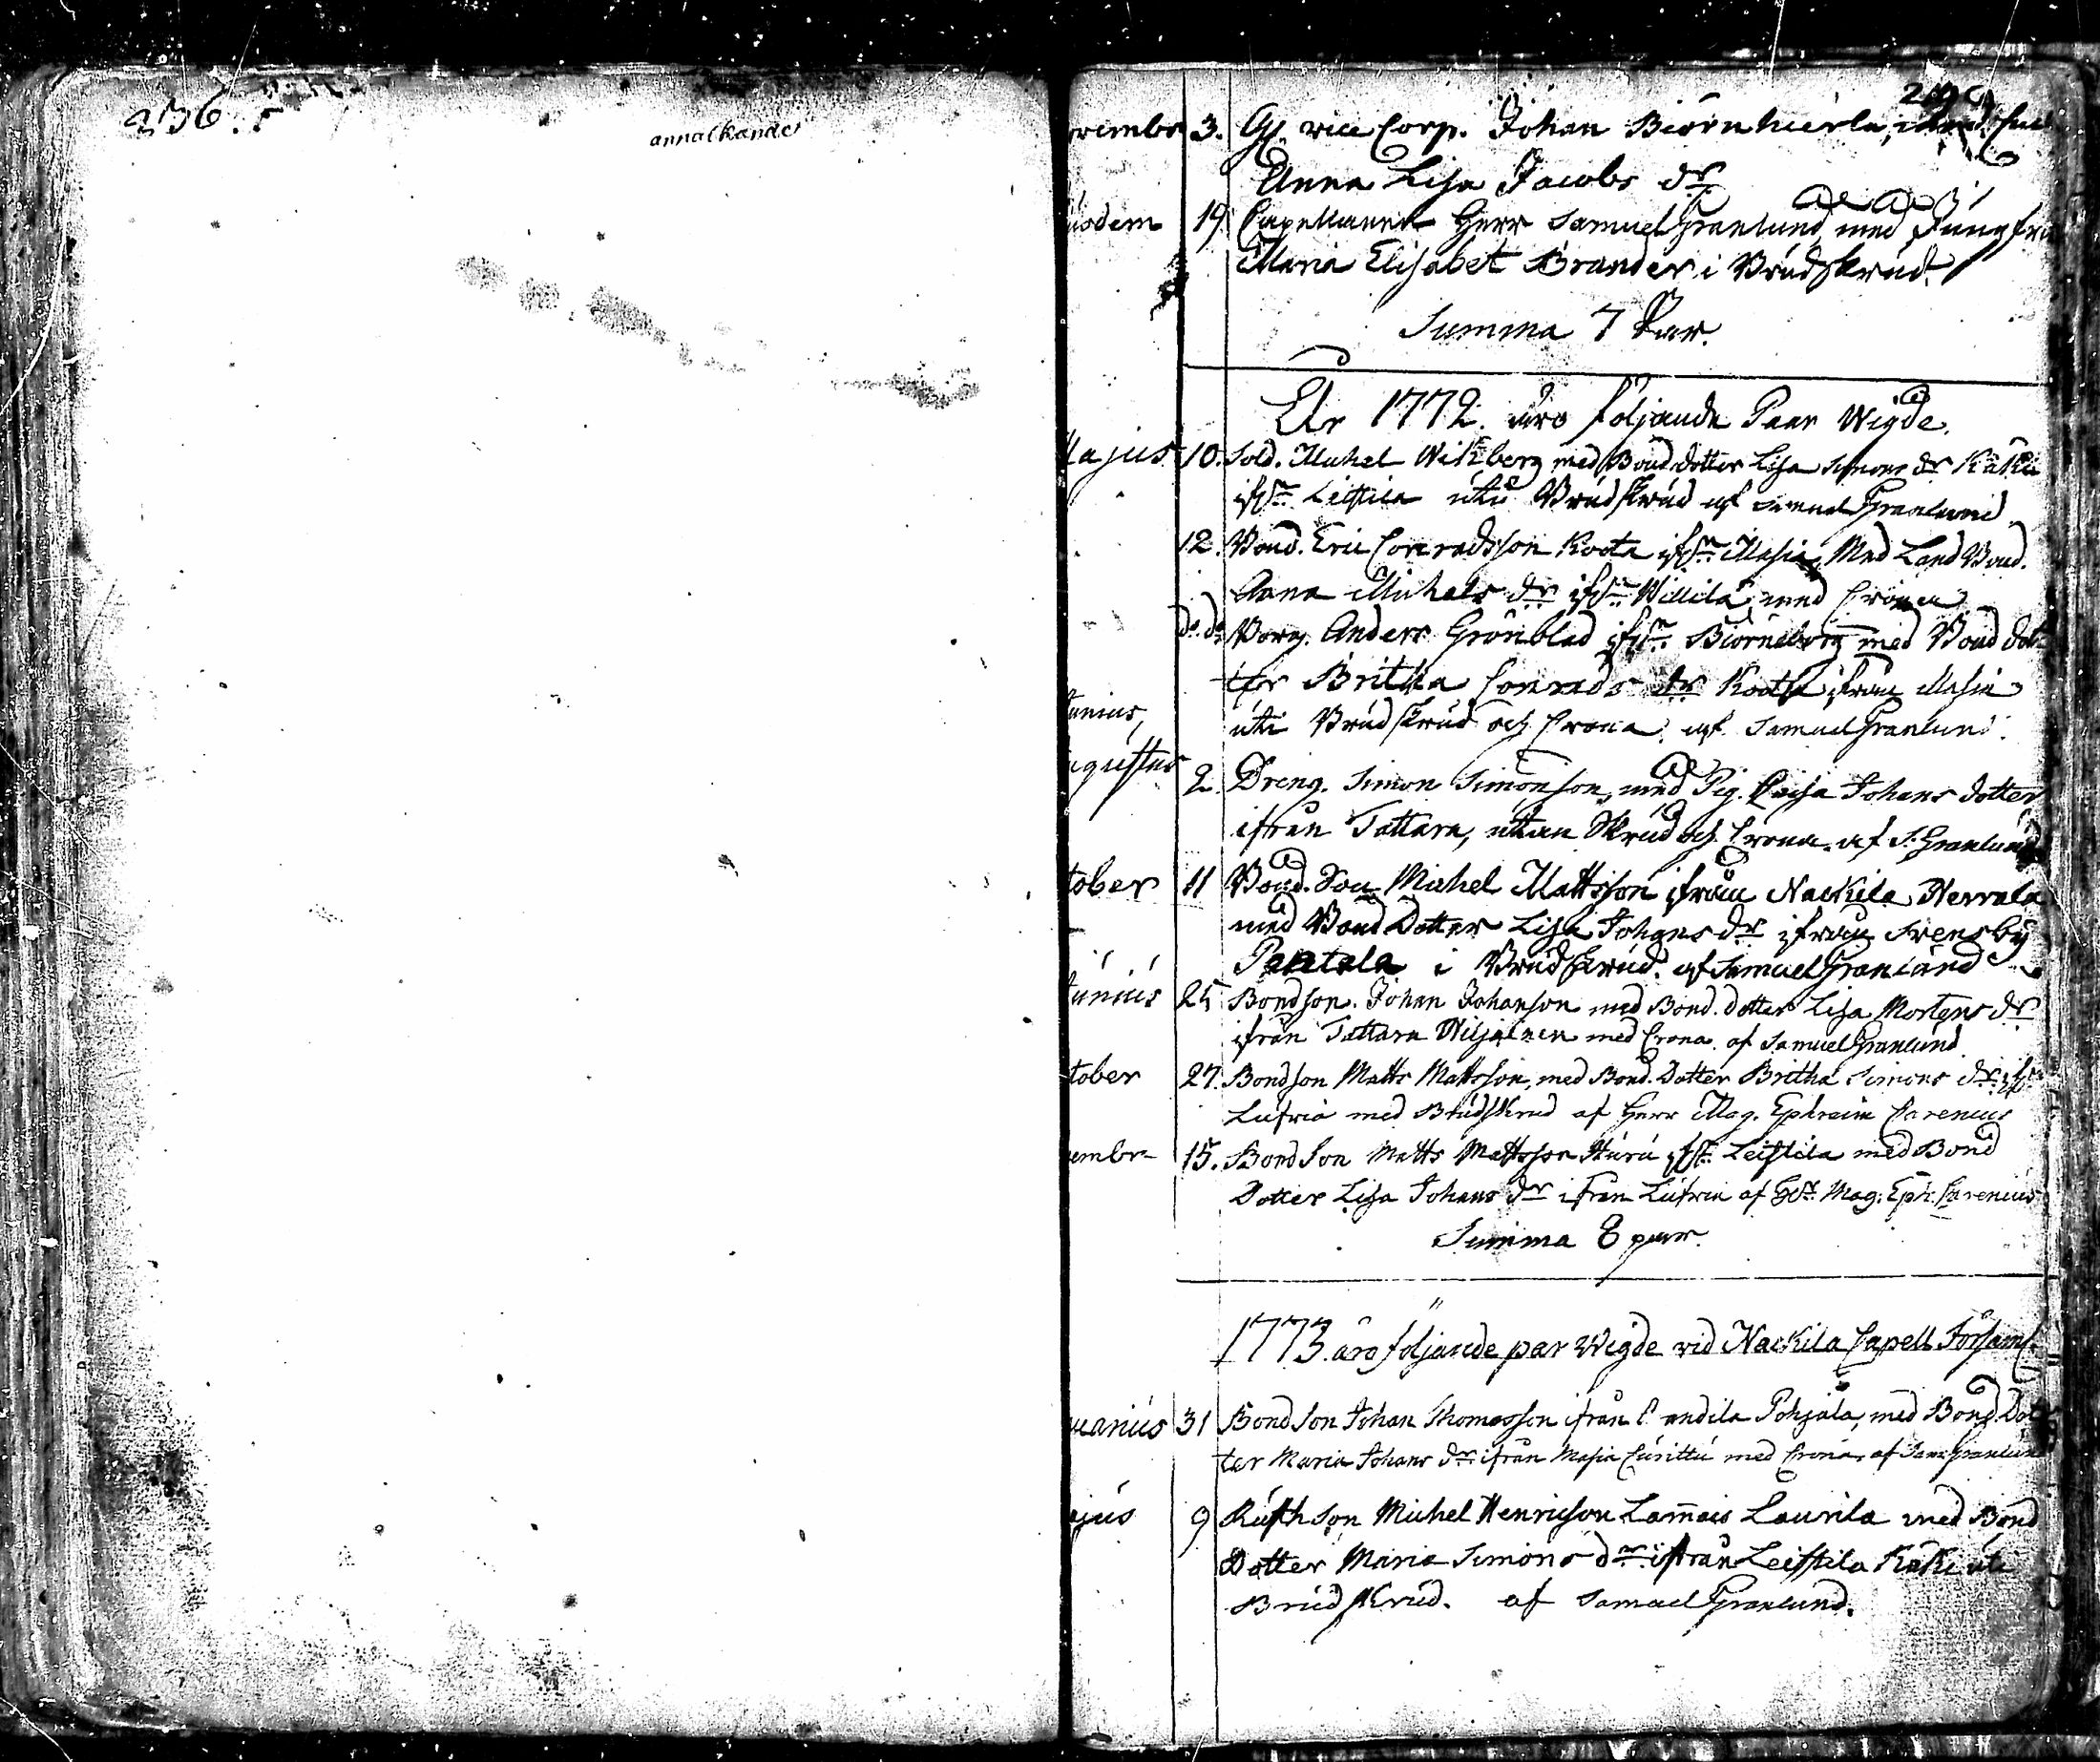 236.
annalkandes
vembr 3. vice Corp. Johan Biörn
Anna Lisa Jacobs dr.
usdem 19. Capellanen Herr Samuel Granlund med Jungfru
Maria Elisabet Brander i Brudskrud.
Summa 7 Par.
År 1772. äro följande Paar Wigde.
Majus 10. Sold. Michel Wikberg med Bond dotter Lisa Simons dr Kåki
ifrn Leistila uti Brudskrud af Samuel Granlund
12. Bond. Eric Conradsson Koota ifrn Masia, Med Land Bond.
Anna Michels dr ifrn Willila med Crona
do. do Borg. Anders Grönblad ifrn Biörneborg med Bond dot
ter Britha Conrads dr Koota ifrån Masia
unius, uti Brudskrud och Crona af Samuel Granlund.
ugustus 2. Dreng. Simon Simonson, med Pig. Caisa Johans dotter
ifrån Tattara, utan Skrud och Crona. af S. Granlund
tober 11 Bond. Son Michel Mattsson ifrån Nackila Herrala
med Bond Dotter Lisa Johans dr ifrån Frensby
Pentala i Brudskrud. af Samuel Granlund
unius 25 Bondson. Johan Johanson med Bond. dotter Lisa Mortens dr
ifrån Tattara Wiljainen med Crona. af Samuel Granlund
tober 27. Bondson Matts Mattsson, med Bond. Dotter Britha Simons dr ifrn
Lufria med Brudskrud af Herr Mag. Ephraim Carenius
embr 15. Bond Son Matts Mattsson Huru ifrn Leistila med Bond
Dotter Lisa Johans dr ifrån Lufria af Hr Mag. Eph. Carenius
Summa 8 par.
1773. äro följande par Wigde vid Nackila Capell Församl.
uarius 31 Bond Son Johan Thomasson ifrån Pohjala, med Bond Dot
ter Maria Johans dr ifrån Masia Curittu med Crona, af Sam. Granlund
ajus 9 Rusth Son Michel Henricson Lamais Laurila med Bond
Dotter Maria Simons dr ifrån Leistila Kåki uti
Brudskrud. af Samuel Granlund.